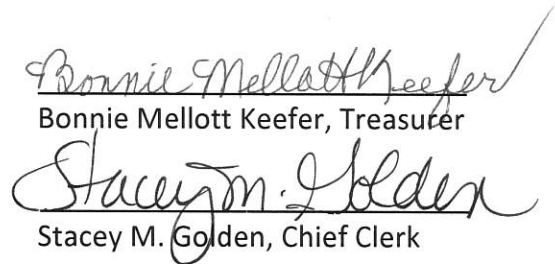 Bonnie Mellott Keefer
Bonnie Mellott Keefer, Treasurer
Stacey M. Golden
Stacey M. Golden, Chief Clerk